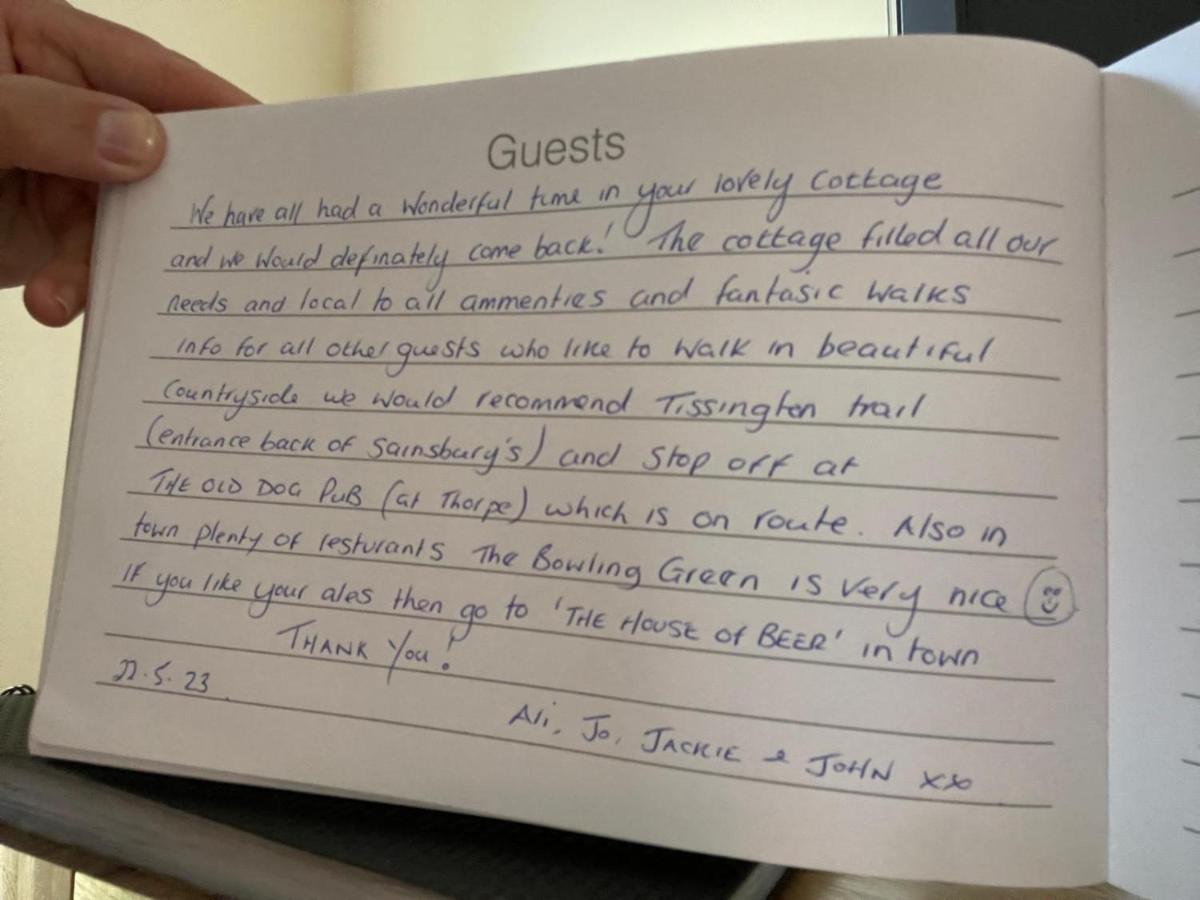 Guests
We have all had a wonderful time in your lovely cottage
and we would definately come back! The cottage filled all our
needs and local to all ammenties and fantasic walks
info for all other guests who like to walk in beautiful
Countryside we would recommend Tissington trail
(entrance back of Sainsbury's) and stop off at
THE OLD DOG PUB (at Thorpe) which is on route. Also in
town plenty of resturants The Bowling Green is very nice
If you like your ales then go to 'THE HOUSE of BEER' in town
THANK You!
22.5.23
Ali, Jo, JACKIE & JOHN xx